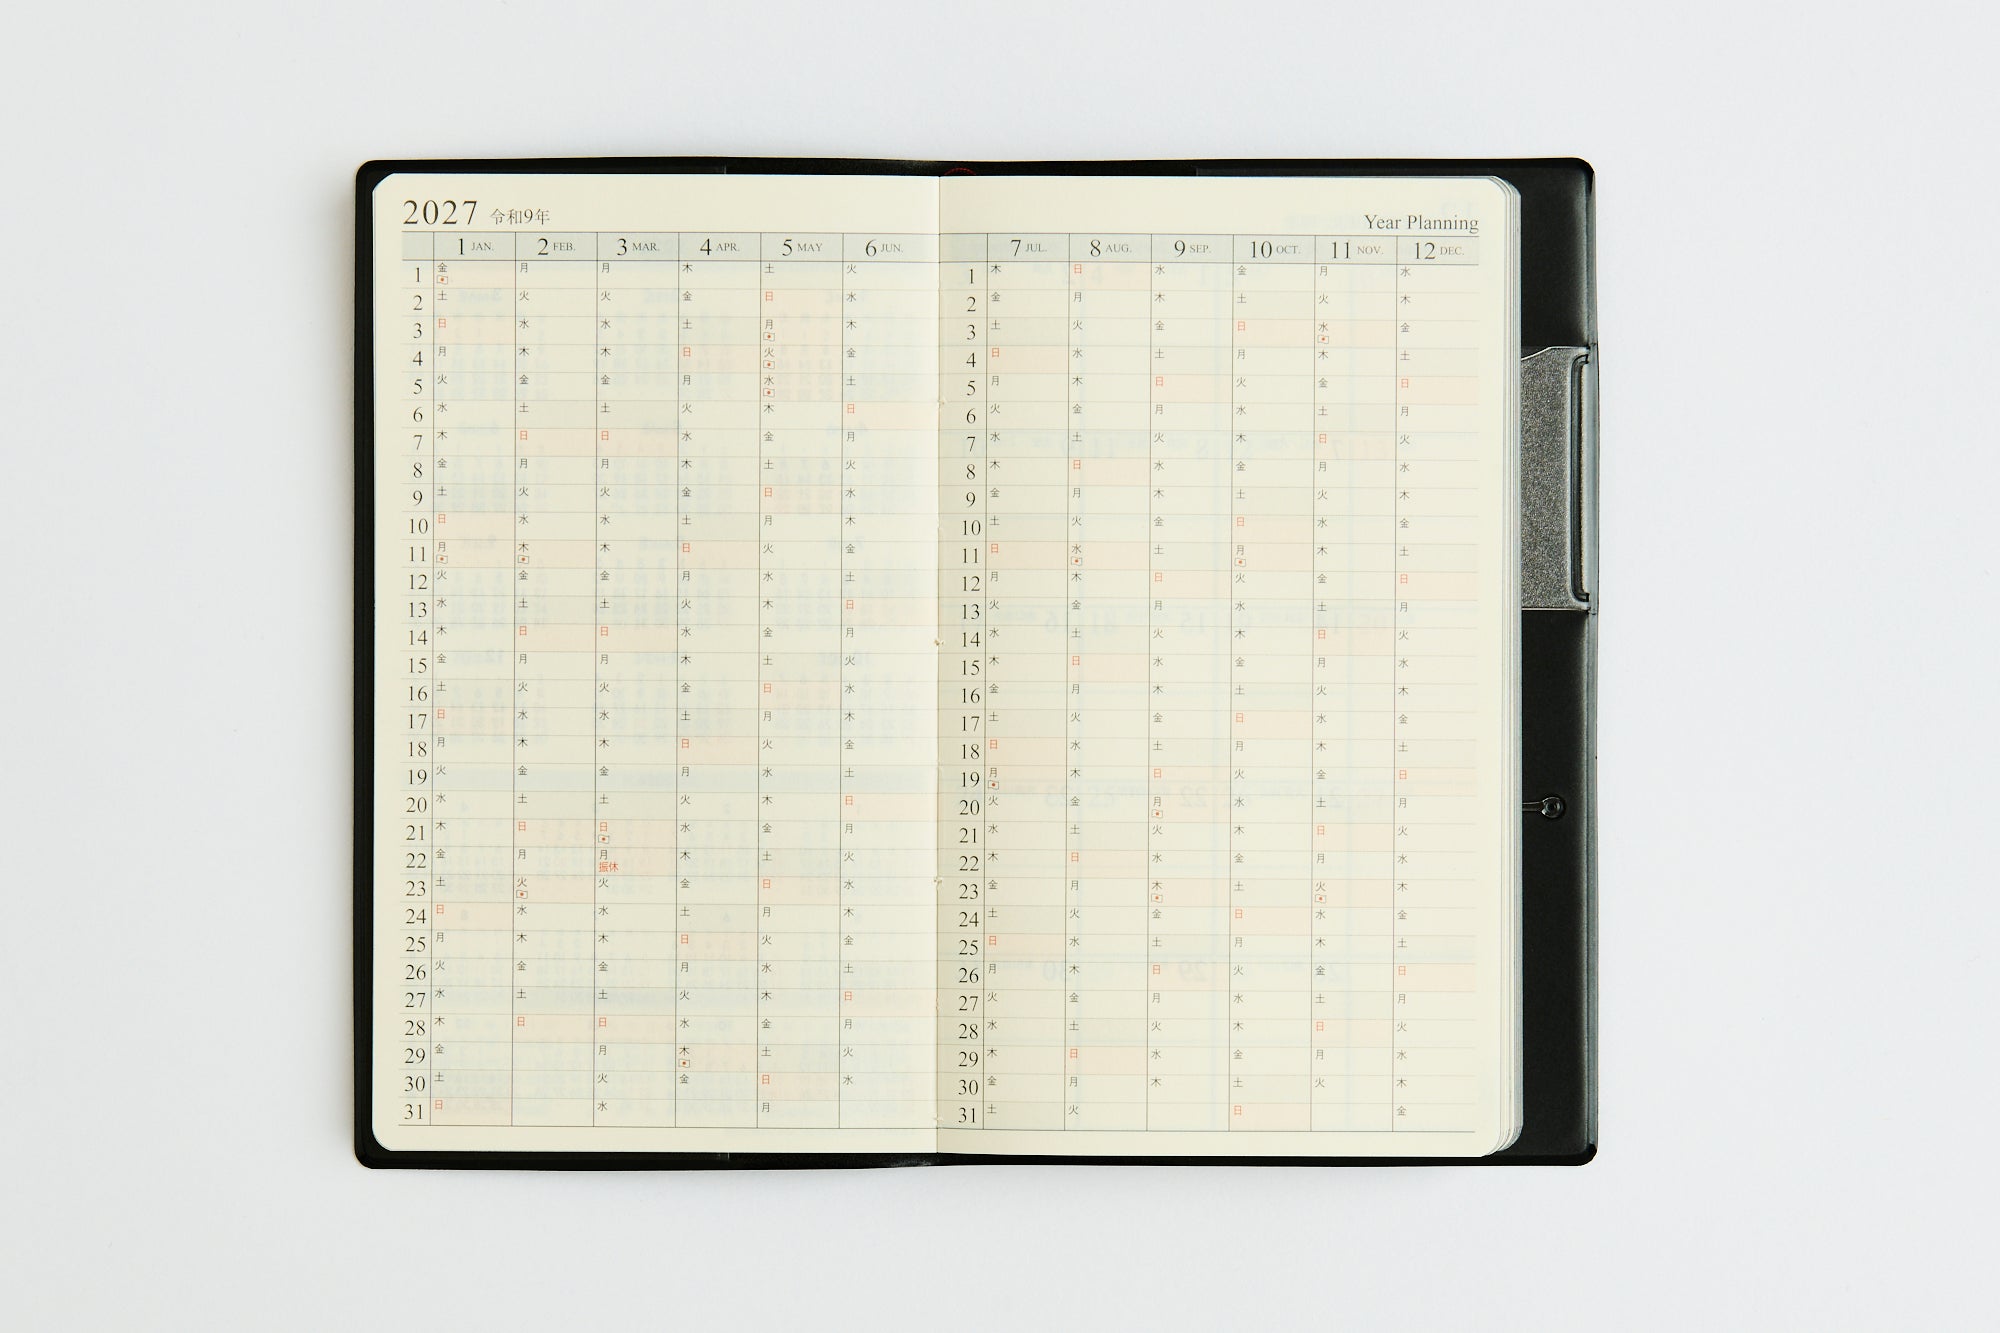 2027 令和9年
1 JAN. 2 FEB. 3 MAR. 4 APR. 5 MAY 6 JUN.
1 金 月 月 木 土 火
2 土 火 火 金 日 水
3 日 水 水 土 月 木
4 月 木 木 日 火 金
5 火 金 金 月 水 土
6 水 土 土 火 木 日
7 木 日 日 水 金 月
8 金 月 月 木 土 火
9 土 火 火 金 日 水
10 日 水 水 土 月 木
11 月 木 木 日 火 金
12 火 金 金 月 水 土
13 水 土 土 火 木 日
14 木 日 日 水 金 月
15 金 月 月 木 土 火
16 土 火 火 金 日 水
17 日 水 水 土 月 木
18 月 木 木 日 火 金
19 火 金 金 月 水 土
20 水 土 土 火 木 日
21 木 日 日 水 金 月
22 金 月 月 木 土 火
振休
23 土 火 火 金 日 水
24 日 水 水 土 月 木
25 月 木 木 日 火 金
26 火 金 金 月 水 土
27 水 土 土 火 木 日
28 木 日 日 水 金 月
29 金 月 木 土 火
30 土 火 金 日 水
31 日 水 月
Year Planning
7 JUL. 8 AUG. 9 SEP. 10 OCT. 11 NOV. 12 DEC.
1 木 日 水 金 月 水
2 金 月 木 土 火 木
3 土 火 金 日 水 金
4 日 水 土 月 木 土
5 月 木 日 火 金 日
6 火 金 月 水 土 月
7 水 土 火 木 日 火
8 木 日 水 金 月 水
9 金 月 木 土 火 木
10 土 火 金 日 水 金
11 日 水 土 月 木 土
12 月 木 日 火 金 日
13 火 金 月 水 土 月
14 水 土 火 木 日 火
15 木 日 水 金 月 水
16 金 月 木 土 火 木
17 土 火 金 日 水 金
18 日 水 土 月 木 土
19 月 木 日 火 金 日
20 火 金 月 水 土 月
21 水 土 火 木 日 火
22 木 日 水 金 月 水
23 金 月 木 土 火 木
24 土 火 金 日 水 金
25 日 水 土 月 木 土
26 月 木 日 火 金 日
27 火 金 月 水 土 月
28 水 土 火 木 日 火
29 木 日 水 金 月 水
30 金 月 木 土 火 木
31 土 火 日 金